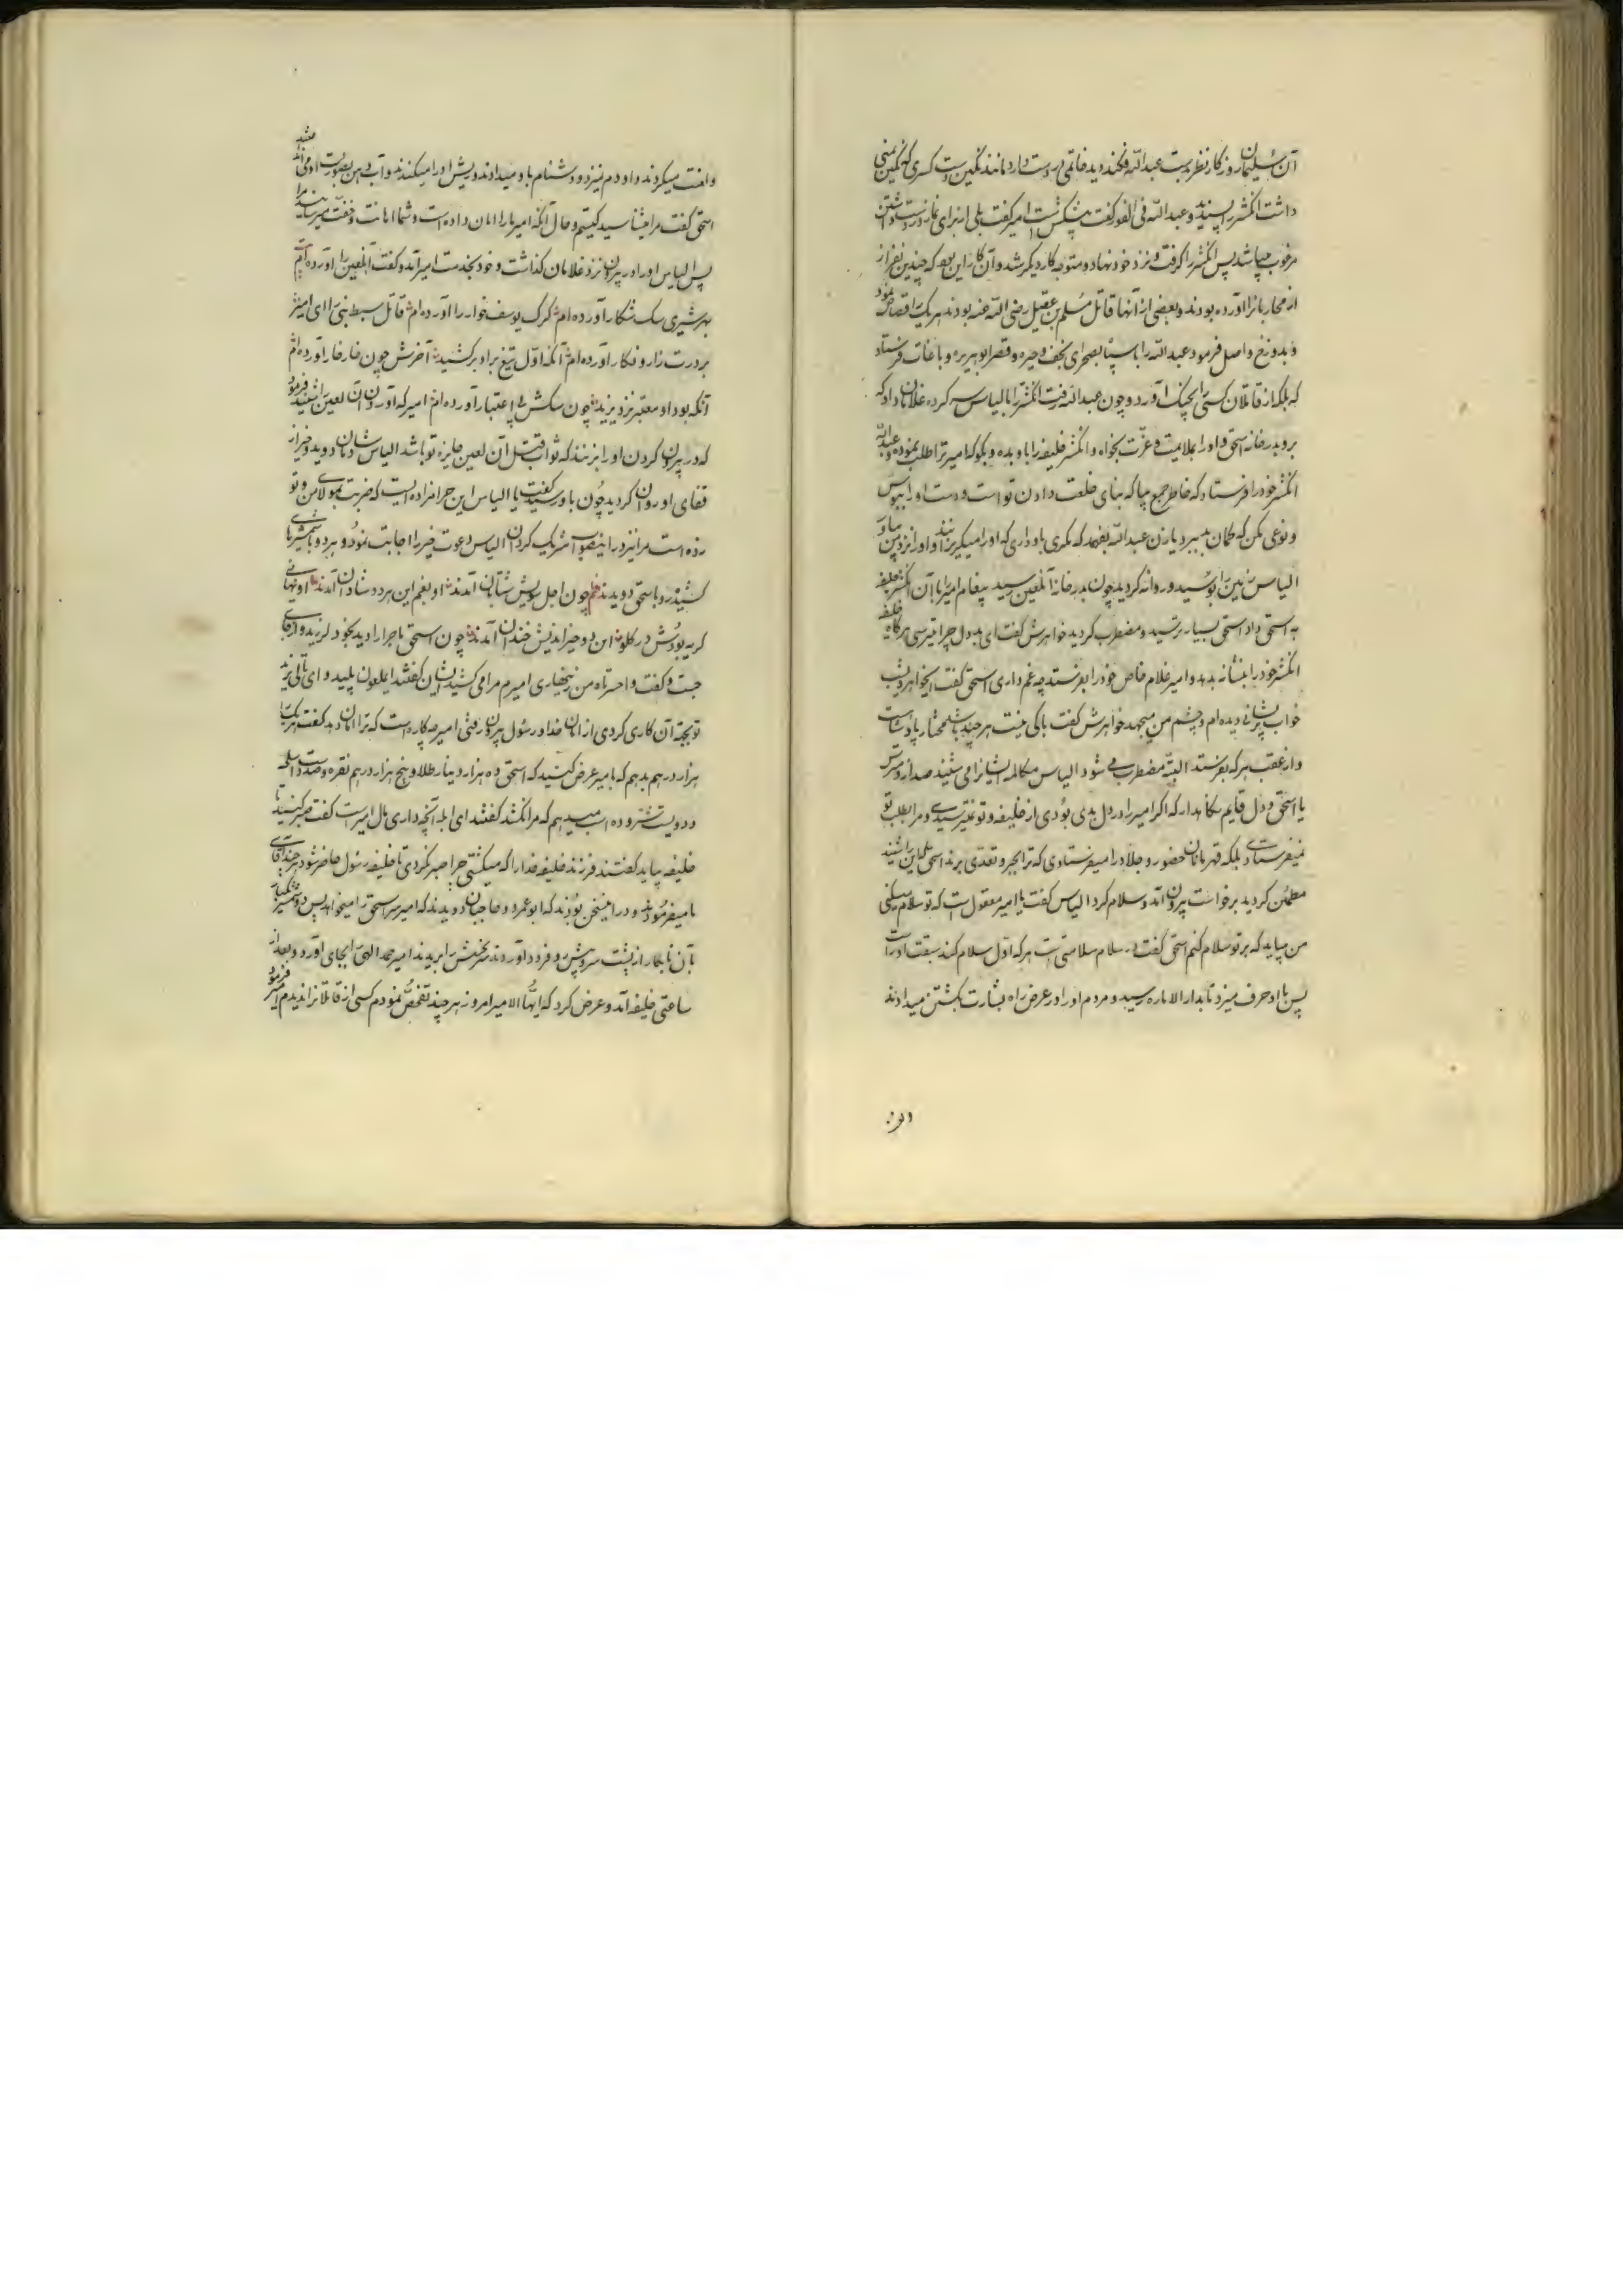 آن سلیمان روزکار نظر بدست عبدالله فکند دید خاتمی در دست دارد مانند نکین دست کسری که نکین یمنی
داشت انکشتر را پسندید و عبدالله فی الفور کفت پیشکش است امیر کفت بلی از برای نماز در دست داشتن
مرغوب میباشد پس انکشتر را کرفت و نزد خود نهاد و متوجه کار دیکر شد و آن کار این بود که چندین نفر از
از محاربانرا آورده بودند و بعضی از آنها قاتل مسلم بن عقیل رضی الله عنه بودند هر یک را قصاص نمود
و بدوزخ واصل فرمود عبدالله را با سپاه بصحرای نجف و حیره و قصر ابو هبیره و باغات فرستاد
که بلکه از قاتلان کسی را بچنک آورد و چون عبدالله رفت انکشتر را بالیاس سپرده غلامان داد که
بروید بدر خانه اسحق و او را بملایمت و عزّت بخواه و انکشتر خلیفه را باو بده و بکو که امیر ترا طلب نموده و عبدالله
انکشتر خود را فرستاد که خاطر جمع بیا که بنای خلعت دادن تو است و دست او را ببوس
و نوعی مکن که کمان ببرد یا زن عبدالله بفهمد که مکری باو داری که او را میکریزانند و او را نزد من بیاور
الیاس زمین را بوسید و روانه کردید چون بدر خانه آنلعین رسید پیغام امیر را با آن انکشتر خلیفه
به اسحق داد اسحق بسیار ترسید و مضطرب کردید خواهرش کفت ای بددل چرا میترسی هرکاه خلیفه
انکشتر خود را بنشانه بدهد و امیر غلام خاص خود را بفرستد چه غم داری اسحق کفت ایخواهر دیشب
خواب پریشانی دیده ام و چشم من میجهد خواهرش کفت باکی نیست هر چند باشد مختار پادشاست
و از عقب هر که بفرستد البته مضطرب می شود الیاس مکالمه ایشانرا می شنید صدا زد مترس
یا اسحق و دل قایم نکاهدار که اکر امیر را در دل بدی بودی از خلیفه و تو نمیترسیدی و مرا بطلب تو
نمیفرستادی بلکه قهرمانان حضور و جلاد را میفرستادی که ترا بجبر و تعدی برند اسحق این را شنید
مطمئن کردید برخاست بیرون آمد و سلام کرد الیاس کفت یا امیر معقول است که تو سلام میکنی
من میباید که بر تو سلام کنم اسحق کفت در سلام سلامتی است هر که اول سلام کند سبقت او راست
پس با او حرف میزد تا بدار الاماره رسید و مردم او را در عرض راه بشارت بکشتن میدادند
و لعنت میکردند و او دم نمیزد و دشنام باو میدادند و ریش او را میکندند و آب دهن بصورت او می انداختند
اسحق کفت مرا میشناسید کیستم و حال آنکه امیر مارا امان داده است و شما اهانت و خفت میرسانید مرا
پس الیاس او را در بیرون نزد غلامان کذاشت و خود بخدمت امیر آمد و کفت آنلعین را آورده ام
بهر شیری سک شکار آورده ام کرک یوسف خوار را آورده ام قاتل سبط نبی را ای امیر
بر درت زار و فکار آورده ام آنکه اوّل تیغ بر او برکشید آخرش چون خار خار آورده ام
آنکه بود او معتبر نزد یزید چون سکش بی اعتبار آورده ام امیر که آوردن آن لعین را شنید فرمود
که در بیرون کردن او را بزنند که ثواب قتل آن لعین جایزه تو باشد الیاس شادان دوید و خیر از
قفای او روان کردید چون باو رسید کفت یا الیاس این حرامزاده ایست که ضربت بمولای من و تو
زده است مرا نیز در اینصواب شریک کردان الیاس دعوت خیر را اجابت نمود و هر دو با شمشیرهای
کشیده رو باسحق دویدند نظم چون اجل سویش شتابان آمدند او بغم این هر دو شادان آمدند او نهانی
کریه بودش در کلو این دو خیر اندیش خندان آمدند چون اسحق ماجرا را دید بخود لرزید و از جای
جست و کفت وا حسرتاه من زنهاری امیرم مرا می کشید ایشان کفتند ایملعون پلید و ای ثانی یزید
تو بجهة آن کاری کردی از امان خدا و رسول بیرون رفتی امیر چه کاره است که ترا امان دهد کفت هر یک را
هزار درهم بدهم که بامیر عرض کنید که اسحق ده هزار دینار طلا و پنج هزار درهم نقره و صد دست اسلحه
و دویست شتر و ده اسب میدهم که مرا نکشد کفتند ای ابله آنچه داری مال امیر است کفت صبر کنید تا
خلیفه بیاید کفتند فرزند خلیفه خدا را که میکشتی چرا صبر نکردی تا خلیفه رسول حاضر شود
ما میفرمود و در این سخن بودند که ابو عمرو و حاجبان دویدند که امیر سر اسحق را میخواهد پس دو شمشیر
بآن نابکار از پشت سر و پیش رو فرود آوردند سر نحسش را بریدند امیر حمد الهی بجای آورد و بعد از
ساعتی خلیفه آمد و عرض کرد که ایها الامیر امروز هر چند تفحص نمودم کسی از قاتلانرا ندیدم امیر فرمود